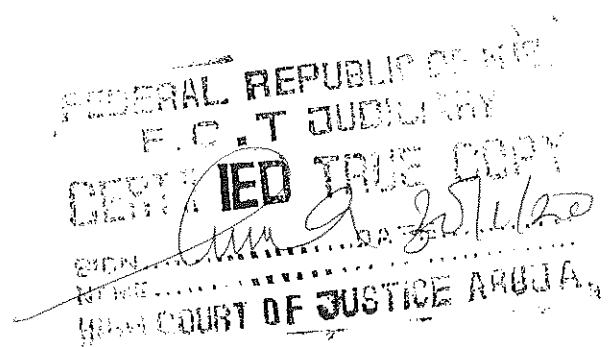 FEDERAL REPUBLIC OF
F.C.T JUDICIARY
CERTIFIED TRUE COPY
SIGN.................DATE..........
NAME..........
HIGH COURT OF JUSTICE ABUJA.